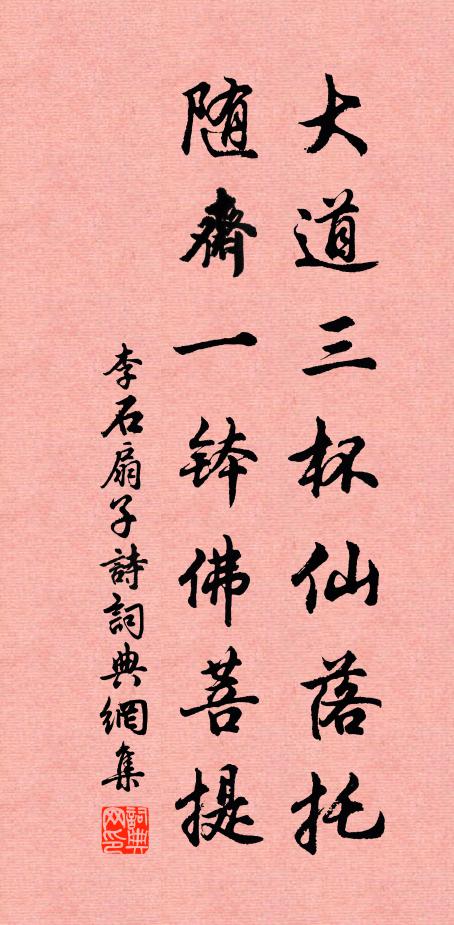 大道三杯仙落托
随齋一钵佛菩提
李石扇子詩詞典網集
詞典网印